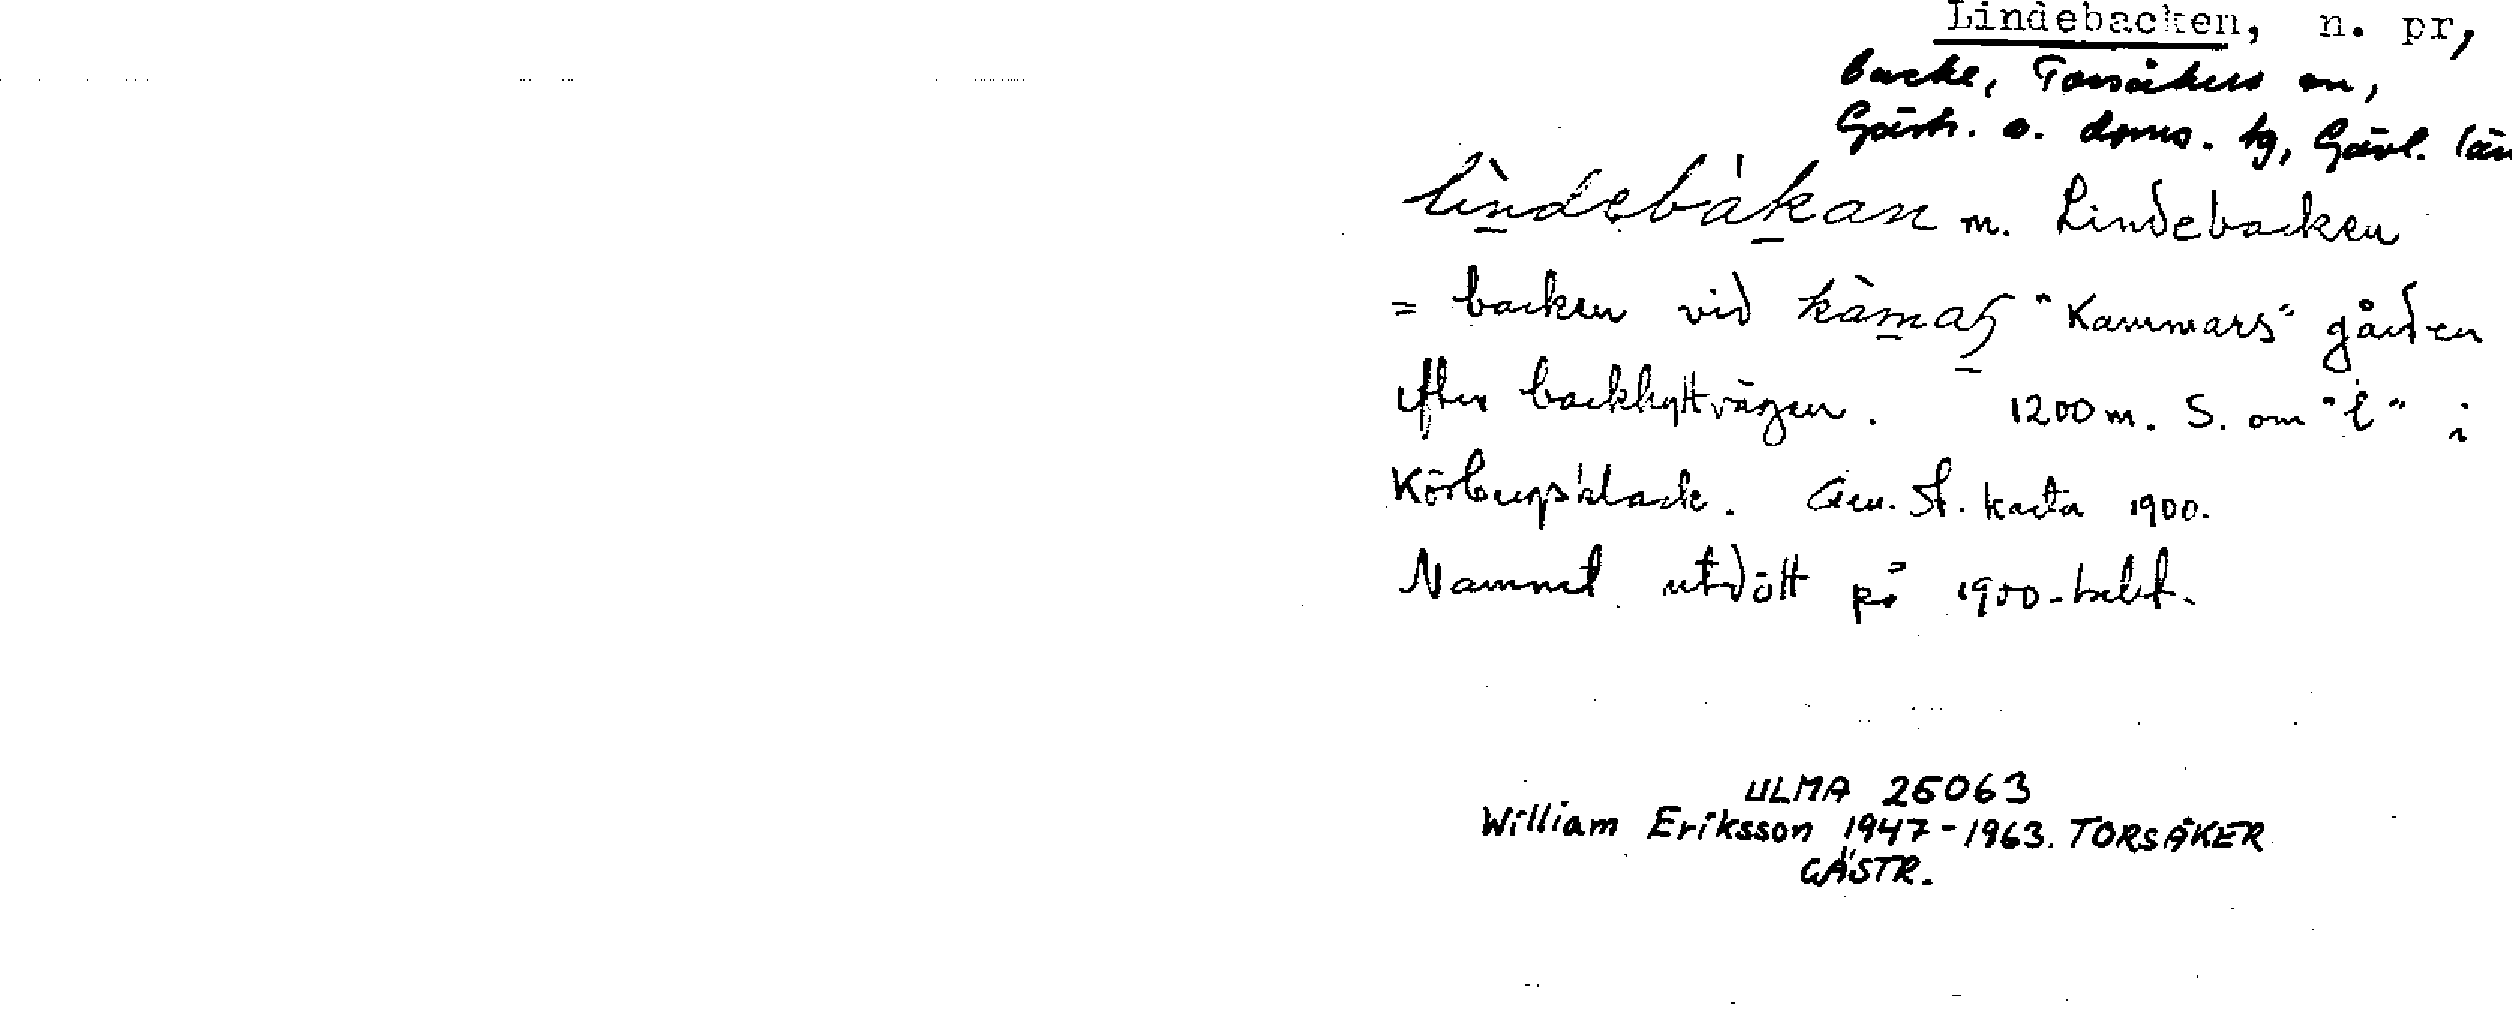 Lindebacken, n. pr,
backe, Torsåkers sn,
Gästr. ö. doms. tg, Gävl. län
lìndebàkan m. Lindebacken
= backen vid kàmaş "Kammars" gården
efter backhyttvägen. 1200 m. S. om "l" i
Körbergsklack. Gen. St. karta 1900.
Namnet utdött på 1900-talet.
ULMA 25063
William Eriksson 1947-1963. TORSÅKER
GÄSTR.